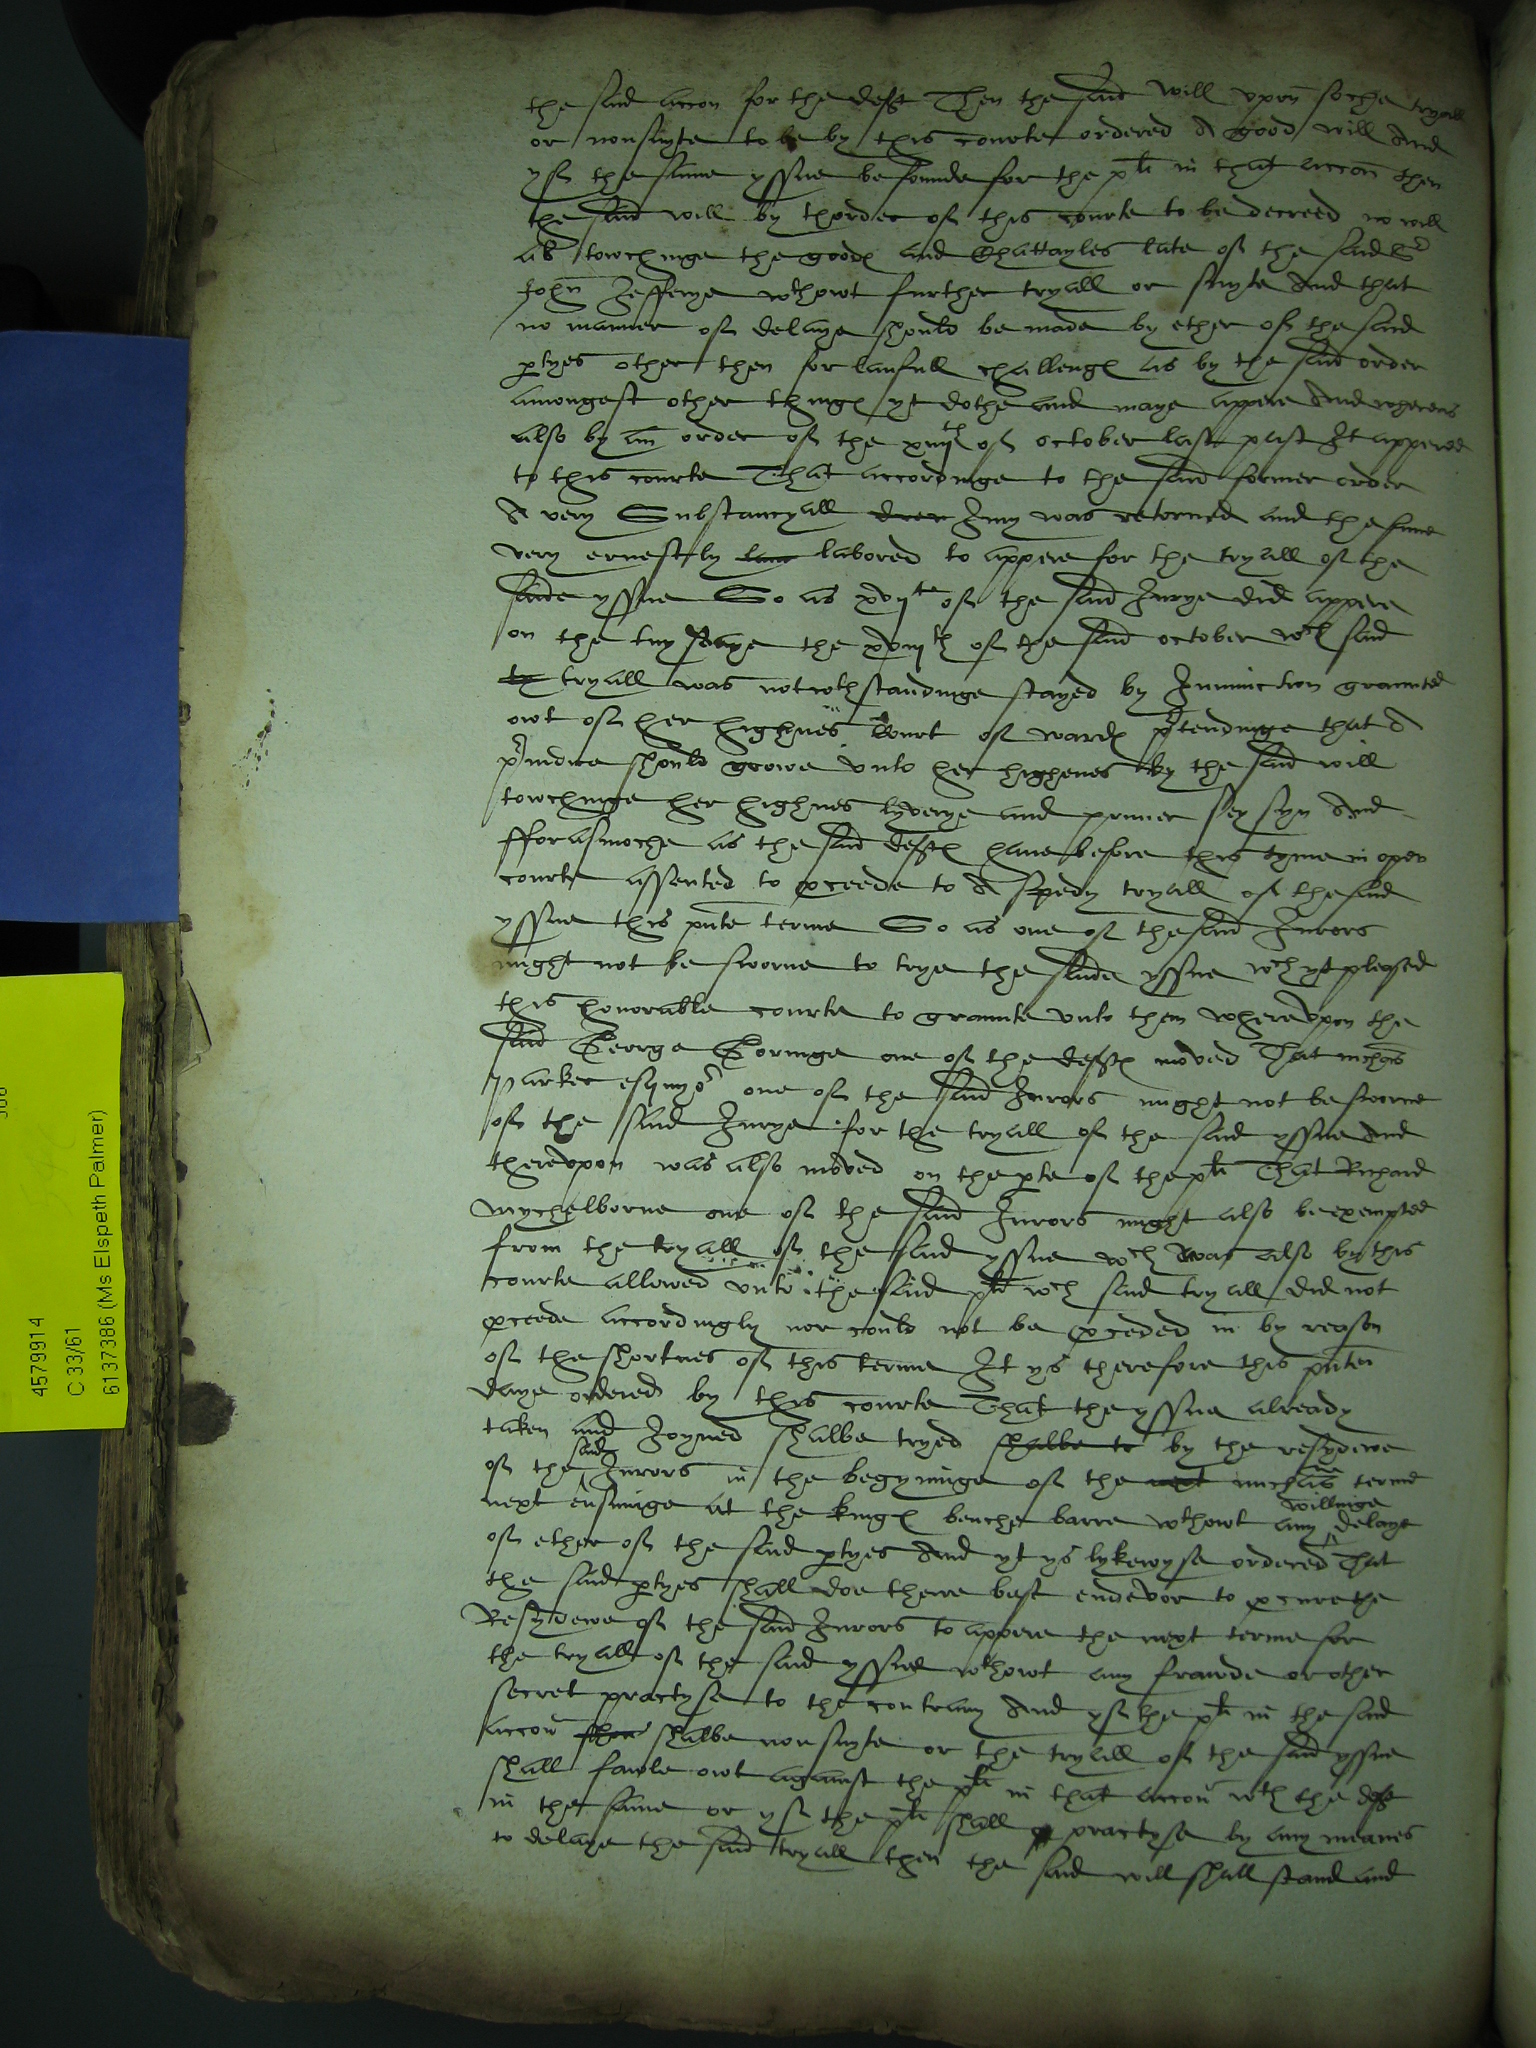 the said accon for the deft Then the said will vpon soche tryall
or nonsuyte to be by this courte ordered A good will And
yf the same yssue be founde for the plt in that accon then
the said will by thorder of this courte to be decreed no will
as towchinge the goodes and Chattayles late of the said Sr
John Jefferye wthowt further tryall or suyte And that
no manner of delaye should be made by ether of the said
ptyes other then for laufull challenges as by the said order
amongest other thinges yt dothe and maye appere And whereas
also by an order of the xiiijth of october last past It appered
to this courte That accordinge to the said former order
A very Substancyall Jury was retorned and the same
very ernestly labored to appere for the tryall of the
saide yssue So as xvijte of the said Jurye did appere
on the tuysdaye the xviijth of the said october wch said
tryall was notwthstandinge stayed by Iniunction graunted
owt of her highnes Court of wardes ptendinge that A
priudice should growe vnto her highenes by the said will
towchinge her highnes lyverye and prymer seysyn And
fforasmoche as the said deftes haue before this tyme in open
courte assented to pceede to A spedy tryall of the said
yssue this pnte terme So as one of the said Jurors
might not be sworne to trye the saide yssue wch yt pleased
this honorable courte to graunte vnto them wherevpon the
said George Goringe one of the deftes moved That Nichas
Parker esquyor one of the said Jurors might not be sworne
of the said Jurye for the tryall of the said yssue And
therevpon was also moved on the pte of the plt That Richard
Mychelborne one of the said Jurors might also be exempted
from the tryall of the said yssue wch was also by this
courte allowed vnto the said plt wch said tryall did not
pceede accordingly nor could not be pceded in by reason
of the shortnes of this terme It ys therefore this pnte
daye ordered by this courte That the yssue already
taken and Joyned shalbe tryed shalbe tr by the resydewe
of the said Jurors in the begynninge of the next michas terme
next ensuinge at the kinges benche barre wthowt any willinge delaye
of ether of the said ptyes And yt ys lykewyse ordered That
the said ptyes shall doe there best endevor to pcure the
Resydewe of the said Jurors to appere the next terme for
the tryall of the said yssue wthowt any frawde or other
secret practyse to the contrary And yf the plt in the said
accon shalbe nonsuyte or the tryall of the said yssue
shall faule owt against the plt in that accon wth the deft
in the same or yf the plt shall practyse by any meanes
to delaye the said tryall then the said will shall stand and
4579914
C 33/61
6137386 (Ms Elspeth Palmer)